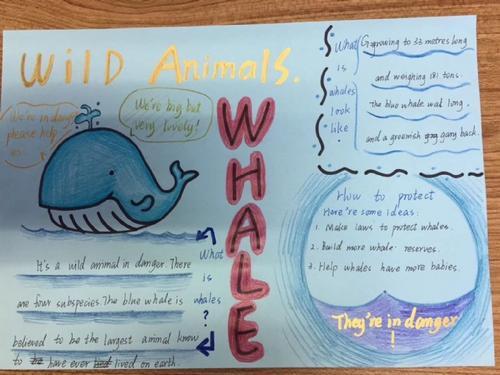 Wild Animals.
We're in danger
please help
us.
We're big but
very lovely!
WHALE
What
is
whales
look
like
?
Ggrowing to 33 metres long
and weighing 181 tons.
the blue whale wad long.
and a greenish gray gary back.
It's a wild animal in danger. There
are four subspecies. The blue whale is
believed to be the largest animal know
to have ever lived on earth.
What
is
whales
?
How to protect
Here're some ideas:
1. Make laws to protect whales.
2. Build more whale reserves.
3. Help whales have more babies.
They're in danger
!